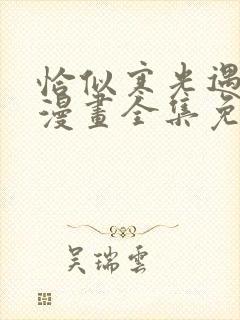 恰似寒光遇
漫畫全集免
吴瑞雲